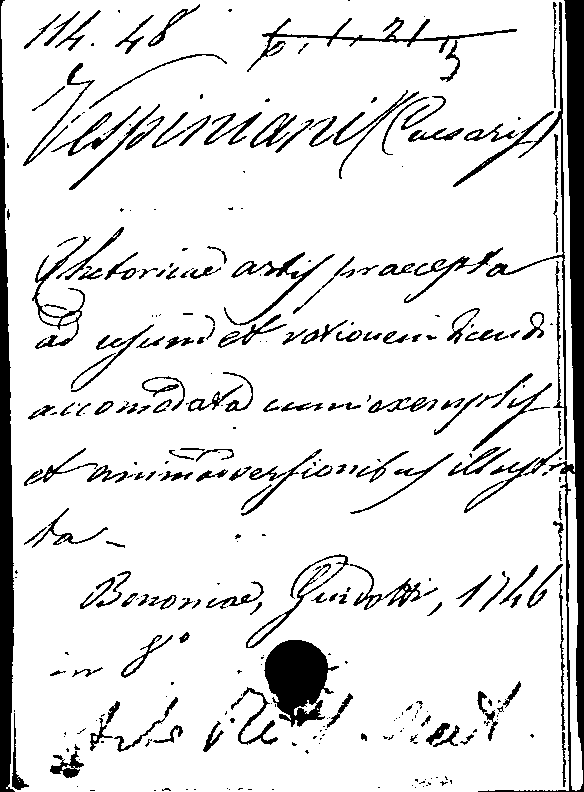 114. 48 b. 1. 21
3
Vespiniani (Caesaris)
Rhetoricae artis praecepta
ad usum et rationem dicendi
accomodata cum exemplis
et animadversionibus illustra
ta -
Bononiae, Guidotti, 1746
in 8°